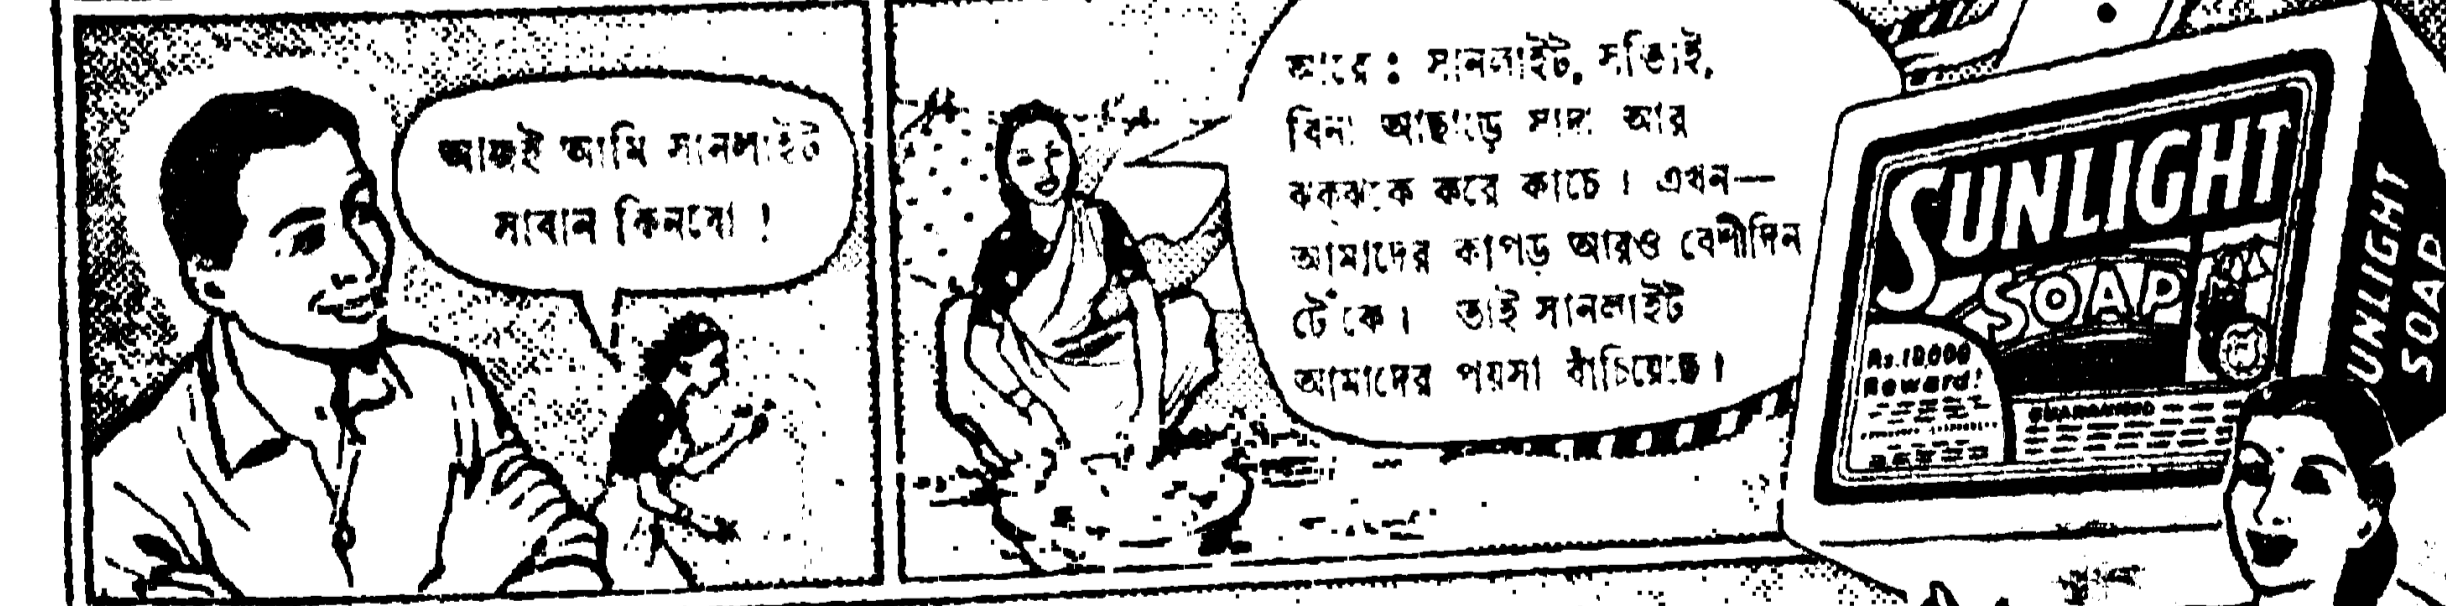 আজই আমি সানলাইট
সাবান কিনবো !
আরে : সানলাইট, সত্যিই,
বিনা আছাড়ে সাদা আর
ঝক্‌ঝকে করে কাচে । এখন—
আমাদের কাপড় আরও বেশীদিন
টেঁকে । তাই সানলাইট
আমাদের পয়সা বাঁচিয়েছে ।
SUNLIGHT
SOAP
Rs.10,000
Reward!
GUARANTEED
SUNLIGHT
SOAP